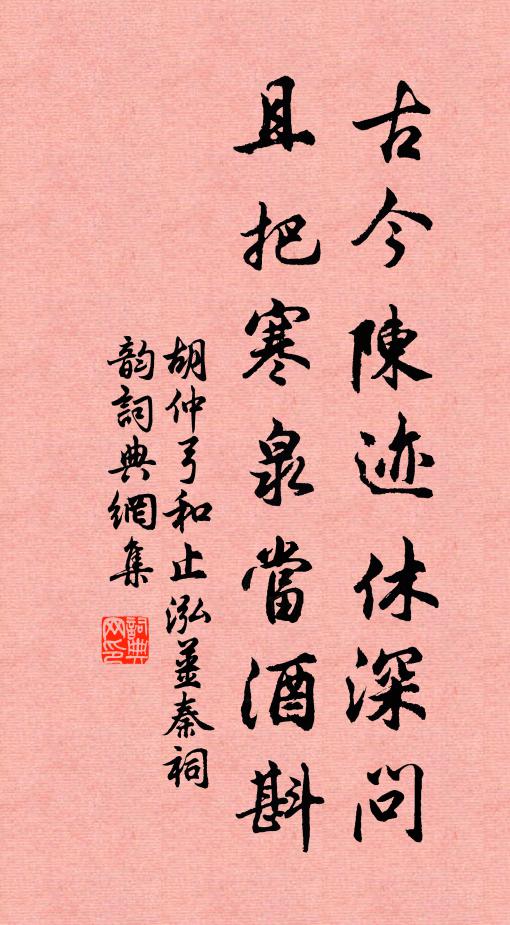 古今陳迹休深問
且把寒泉當酒斟
胡仲弓和止泓薑秦祠
韵詞典網集
詞典网印